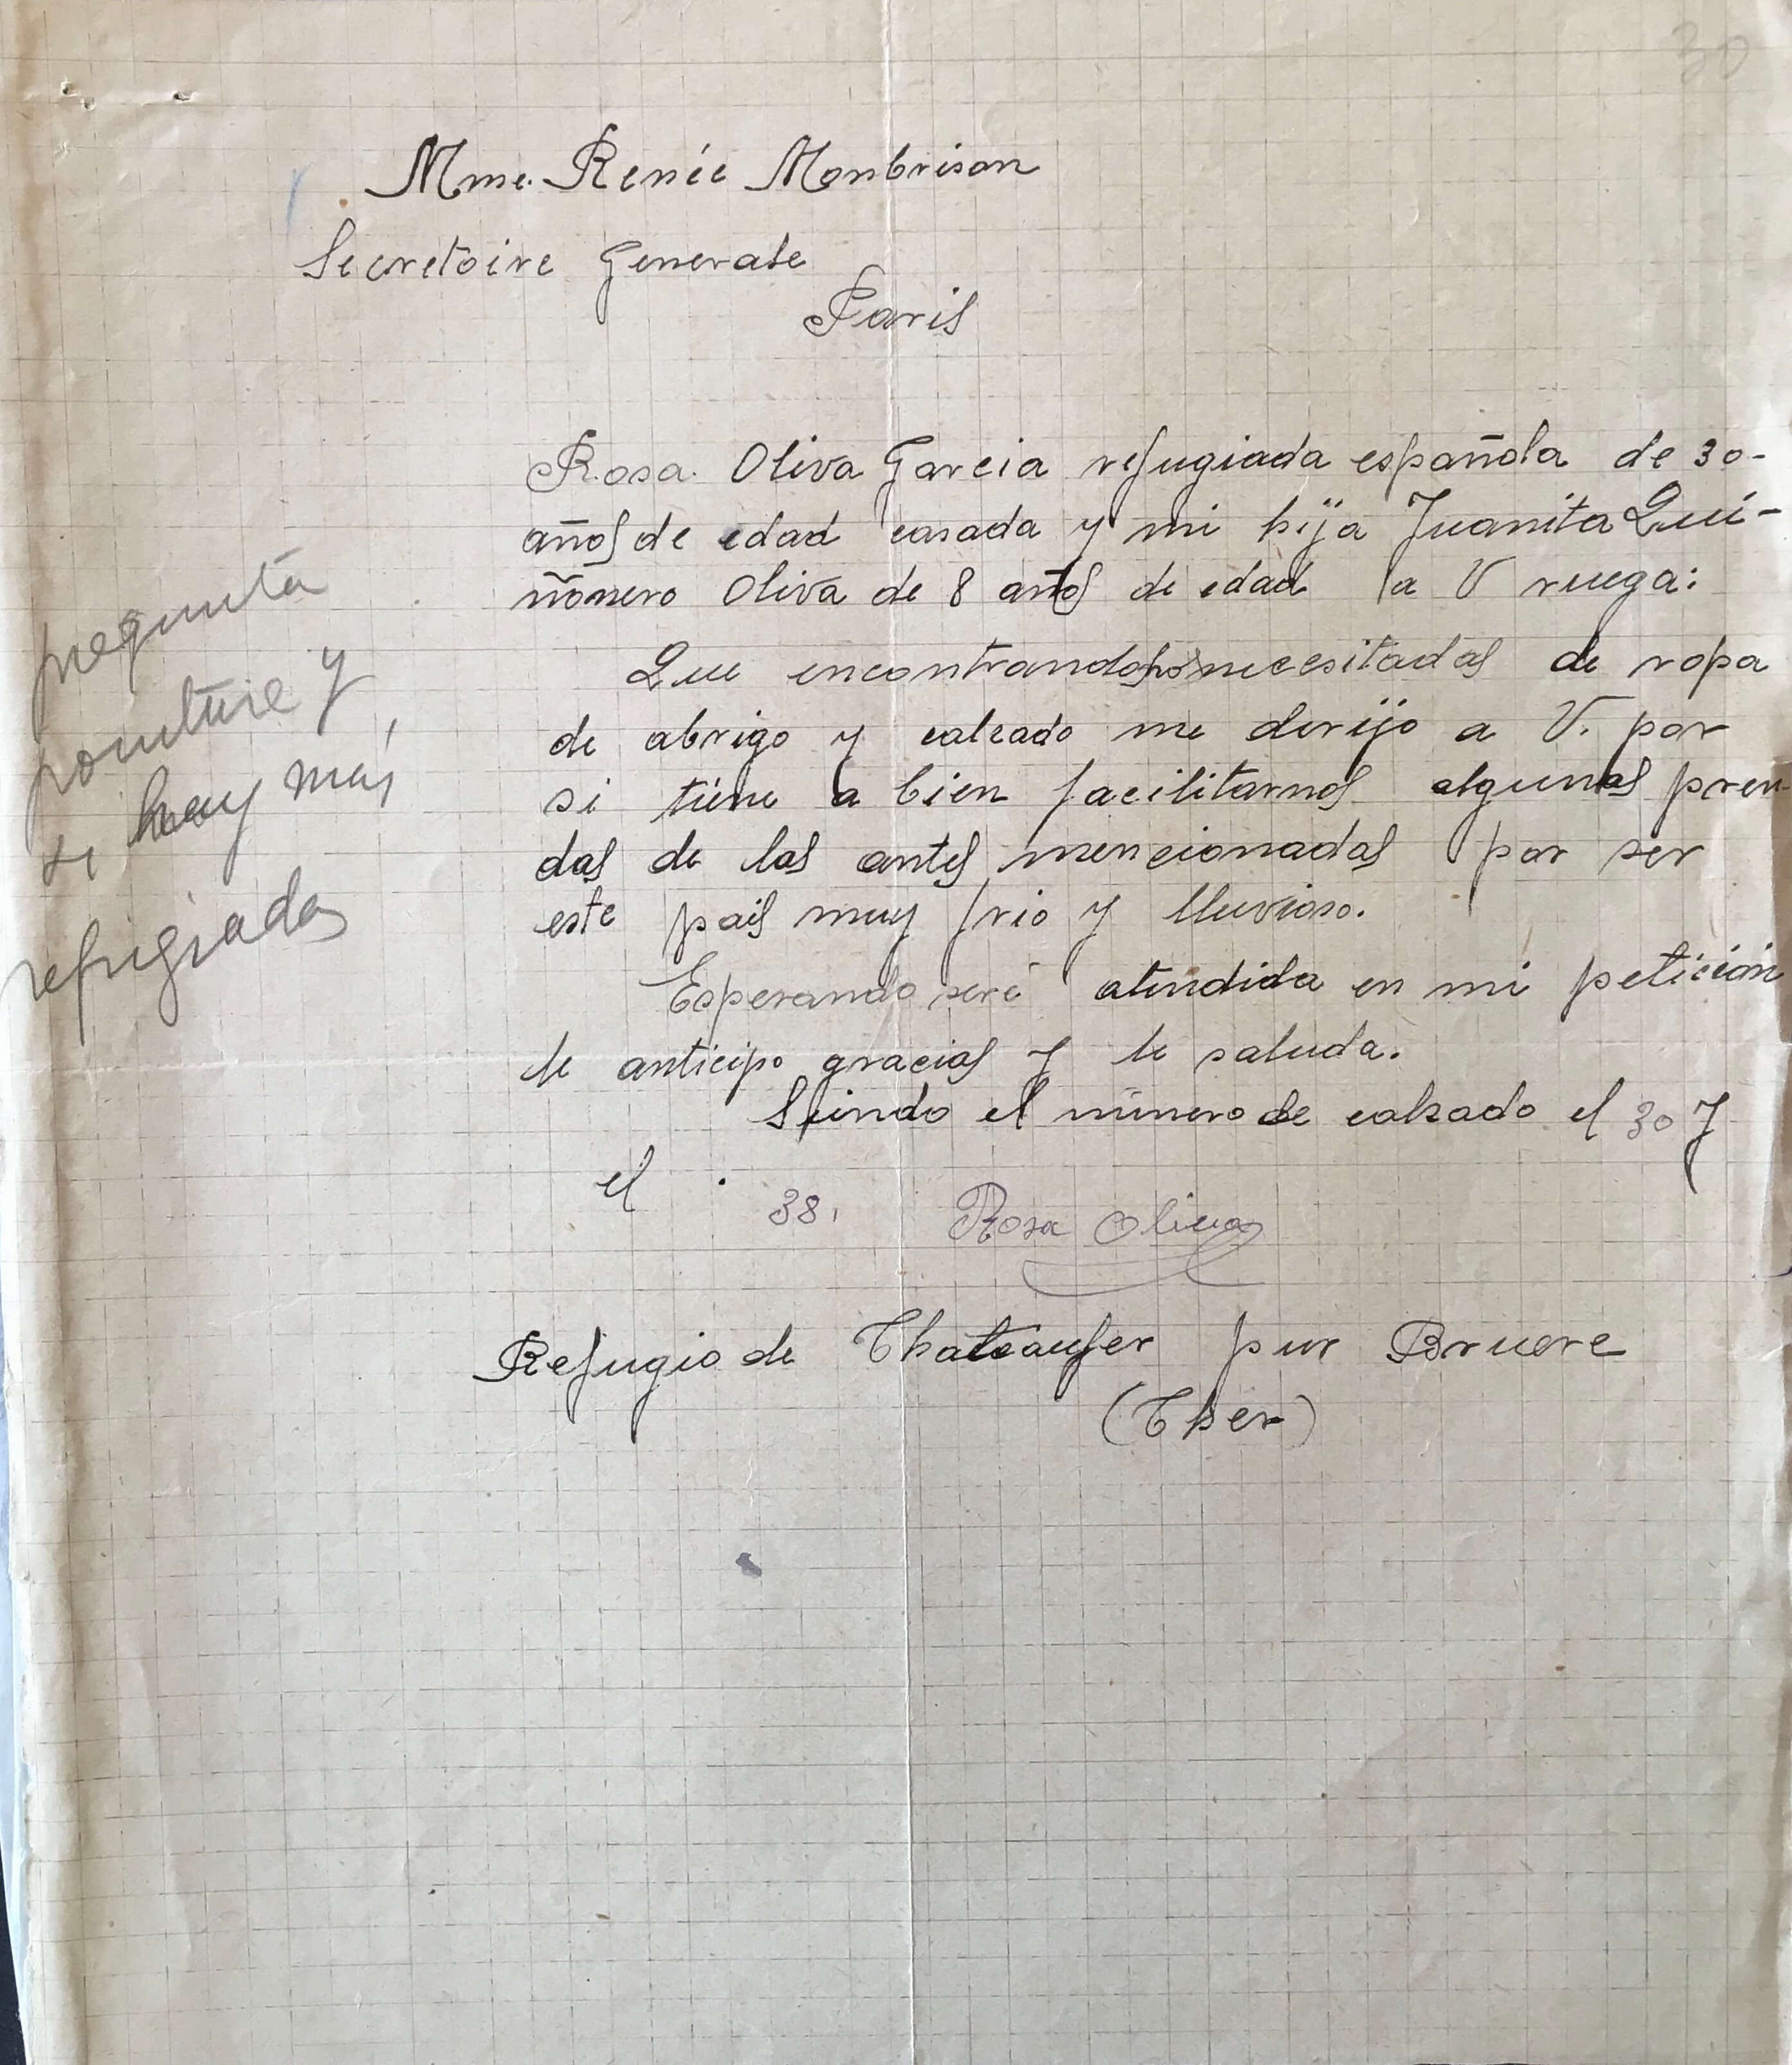 30
Mme. Renée Monbrison
Secretoire Generale
Paris
Rosa Oliva Garcia refugiada española de 30-
años de edad casada y mi hija Juanita Qui-
ñonero Oliva de 8 años de edad a V ruega:
Que encontrandonos necesitadas de ropa
de abrigo y calzado me dirijo a V. por
si tiene a bien facilitarnos algunas pren
das de las antes mencionadas por ser
este pais muy frio y lluvioso.
Esperando seré atendida en mi petición
le anticipo gracias y le saluda.
Siendo el número de calzado el 30 y
el . 38.
Rosa Oliva
Refugio de Chateaufer pur Bruere
(Cher)
pregunta
pointure y
si hay más
refugiadas